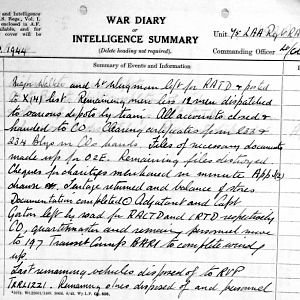 and Intelligence
S. Regs., Vol. I.
enclosed in A.F.
available, and for
cover will be
WAR DIARY
or
INTELLIGENCE SUMMARY
(Delete heading not required).
Unit 75 LAA Rgt RA
Commanding Officer
1944
Summary of Events and Information
Major and Lt left for RATD & posted
to X(4) list. Remaining men less 12 men dispatched
to various depots by train. All accounts closed &
handed to CO. Clearing certificates from 233 &
234 Btys in COs hands. Files of necessary documents
made up for O2E. Remaining files destroyed.
Cheques for charities in minute App 4(2)
drawn. Tentage returned and balance of stores
Documentation completed. Adjutant and Capt
left by road for RACTD and 1 RTD respectively
CO, quartermaster and remaining personnel move
to 197 Transit Camp BARI to complete winding
up.
Last remaining vehicles disposed of to RVP
TERLIZZI. Remaining stores disposed of and personnel